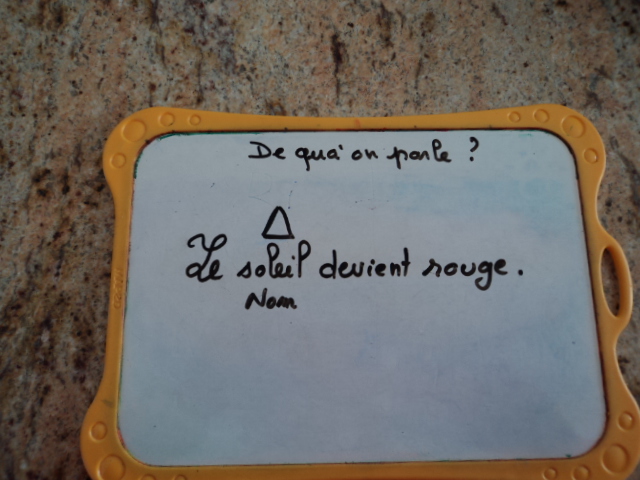 De quoi on parle ?
Le soleil devient rouge.
Nom